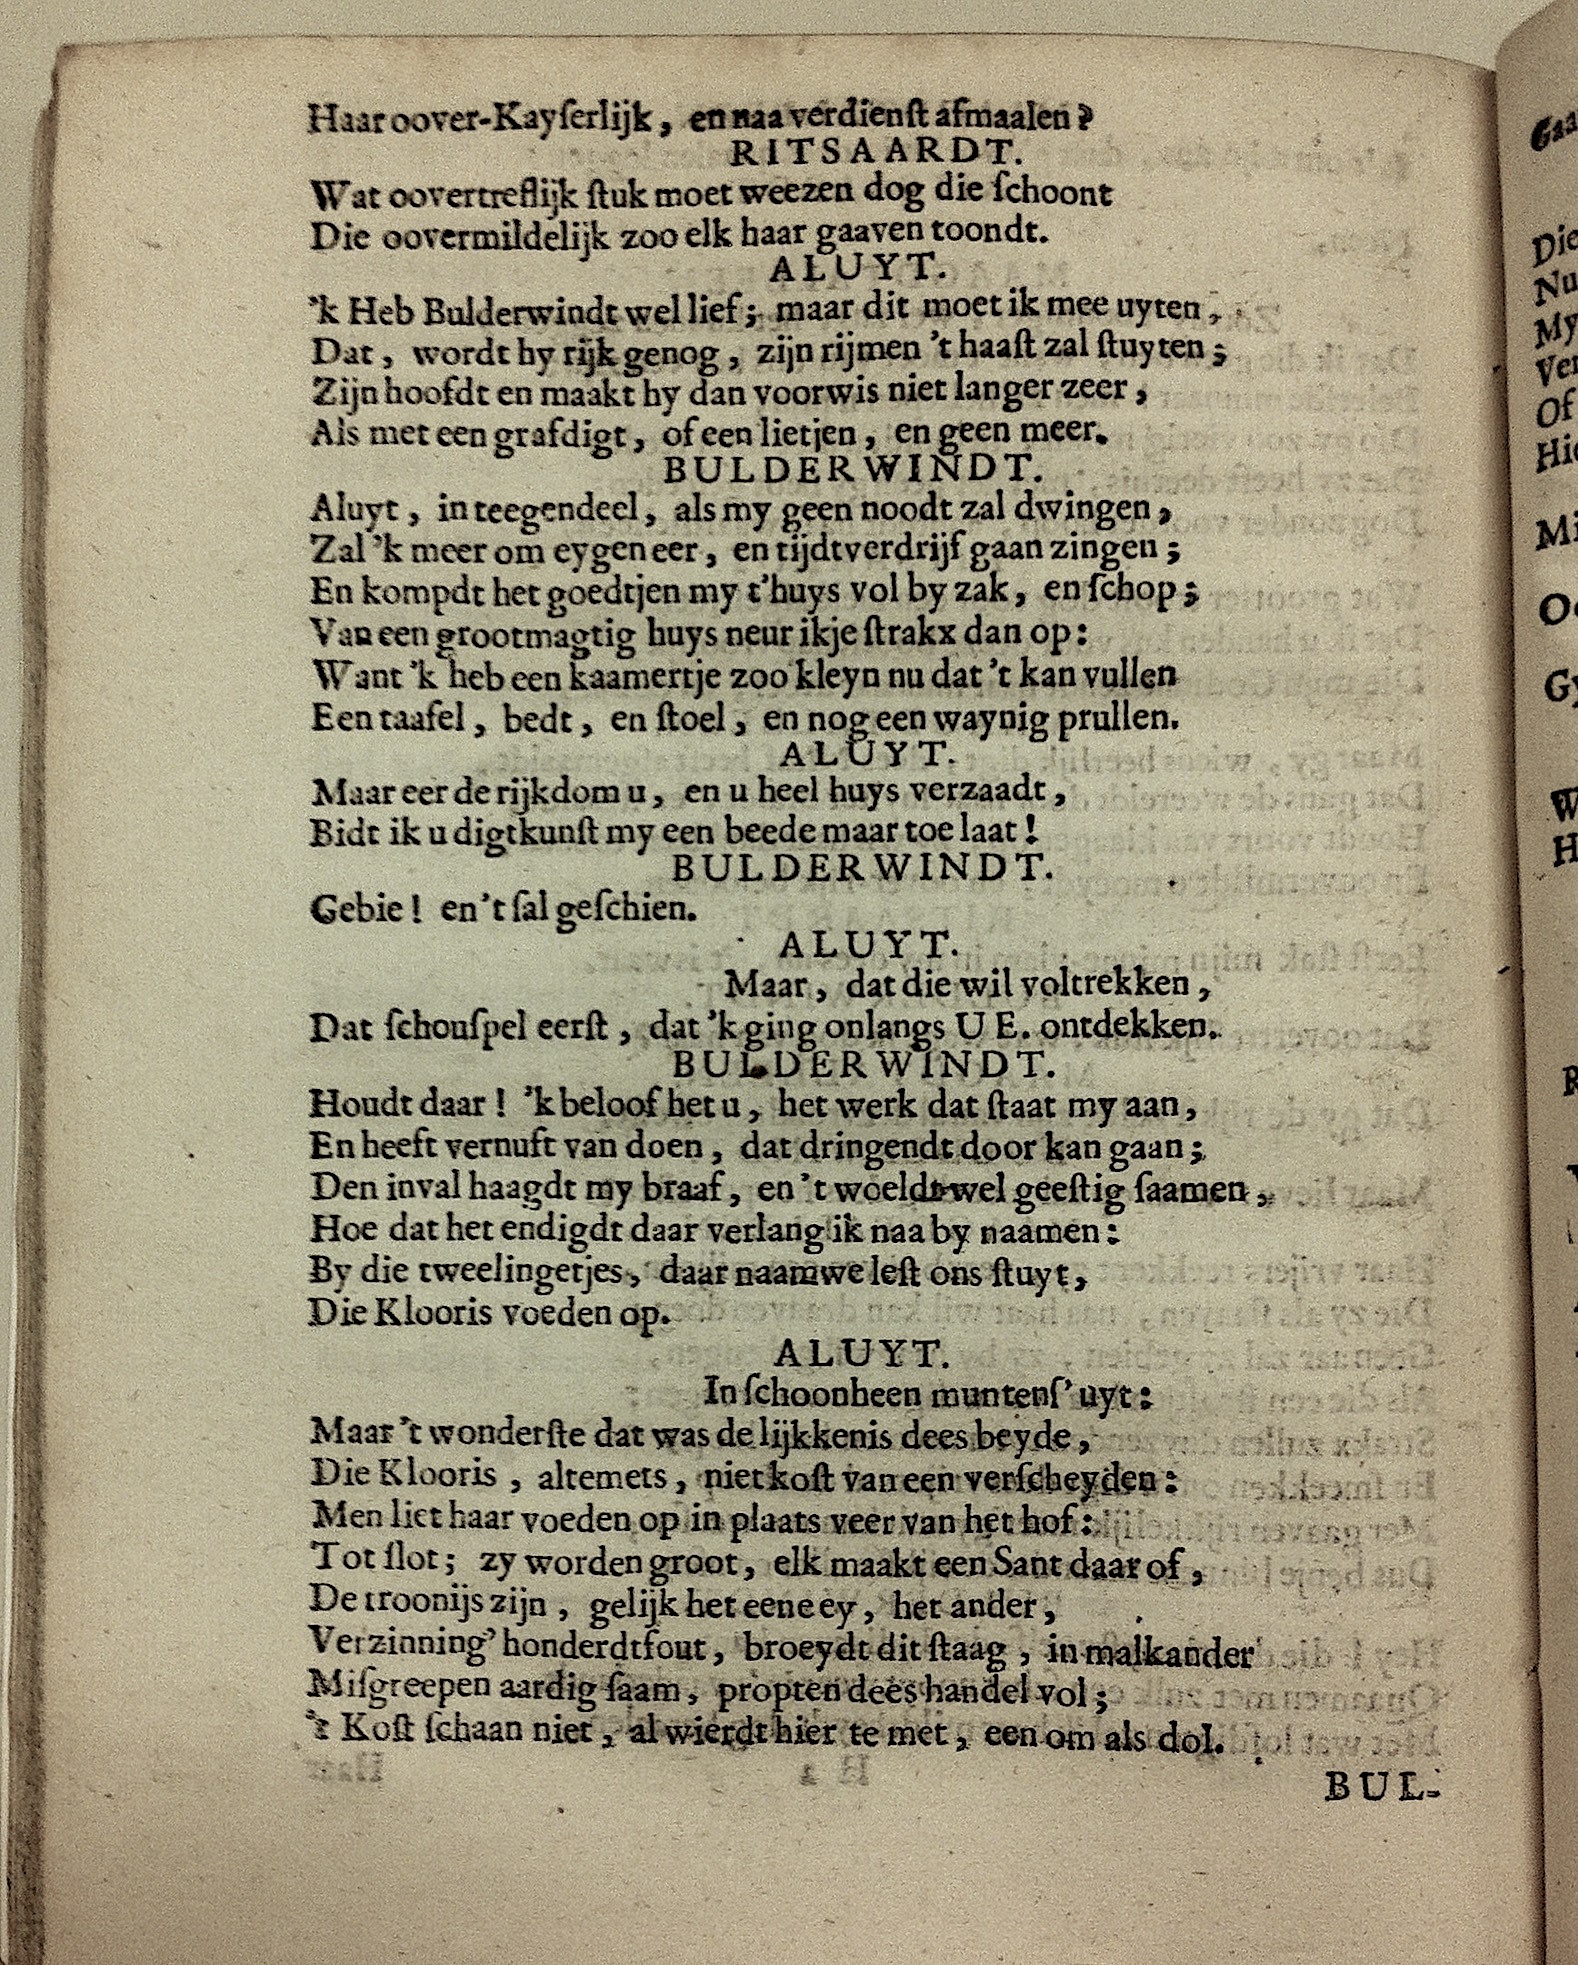 Haar oover-Kayſerlijk, en naa verdienſt afmaalen?
RITSAARDT.
Wat oovertreflijk ſtuk moet weezen dog die ſchoont
Die oovermildelijk zoo elk haar gaaven toondt.
ALUYT.
'k Heb Bulderwindt wel lief; maar dit moet ik mee uyten,
Dat, wordt hy rijk genog, zijn rijmen 't haaſt zal ſtuyten;
Zijn hoofdt en maakt hy dan voorwis niet langer zeer,
Als met een grafdigt, of een lietjen, en geen meer.
BULDERWINDT.
Aluyt, in teegendeel, als my geen noodt zal dwingen,
Zal 'k meer om eygen eer, en tijdtverdrijf gaan zingen;
En kompdt het goedtjen my t'huys vol by zak, en ſchop;
Van een grootmagtig huys neur ikje ſtrakx dan op:
Want 'k heb een kaamertje zoo kleyn nu dat 't kan vullen
Een taafel, bedt, en ſtoel, en nog een waynig prullen.
ALUYT.
Maar eer de rijkdom u, en u heel huys verzaadt,
Bidt ik u digtkunſt my een beede maar toe laat!
BULDERWINDT.
Gebie! en 't ſal geſchien.
ALUYT.
Maar, dat die wil voltrekken,
Dat ſchouſpel eerſt, dat 'k ging onlangs U E. ontdekken.
BULDERWINDT.
Houdt daar! 'k beloof het u, het werk dat ſtaat my aan,
En heeft vernuft van doen, dat dringendt door kan gaan;
Den inval haagdt my braaf, en 't woeldt wel geeſtig ſaamen,
Hoe dat het endigdt daar verlang ik naa by naamen:
By die tweelingetjes, daar naamwe leſt ons ſtuyt,
Die Klooris voeden op.
ALUYT.
In ſchoonheen muntenſ' uyt:
Maar 't wonderſte dat was de lijkkenis dees beyde,
Die Klooris, altemets, niet koſt van een verſcheyden:
Men liet haar voeden op in plaats veer van het hof:
Tot ſlot; zy worden groot, elk maakt een Sant daar of,
De troonijs zijn, gelijk het eene ey, het ander,
Verzinning' honderdtfout, broeydt dit ſtaag, in malkander
Miſgreepen aardig ſaam, propten dees handel vol;
't Koſt ſchaan niet, al wierdt hier te met, een om als dol.
BUL-